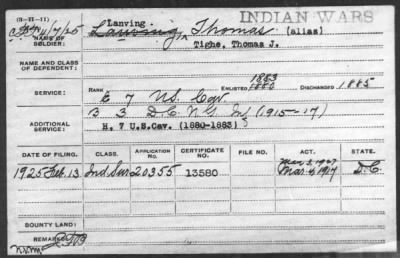 (3-II-11)
INDIAN WARS
Lanving,
4/7/25 Lanving, Thomas (alias)
NAME OF SOLDIER:
Tighe, Thomas J.
NAME AND CLASS OF DEPENDENT:
1883
RANK ENLISTED 1880 DISCHARGED 1885
SERVICE: E 7 U.S. Cav.
B 3 D.C. N.G. Inf (1915-17)
ADDITIONAL SERVICE:
H. 7 U.S.Cav. (1880-1883)
DATE OF FILING. CLASS. APPLICATION NO. CERTIFICATE NO. FILE NO. ACT. STATE.
Mar 3, 1927
1925 Feb. 13 Ind Sur 20355 13580 Mar. 4, 1917 D.C.
BOUNTY LAND:
REMARKS: